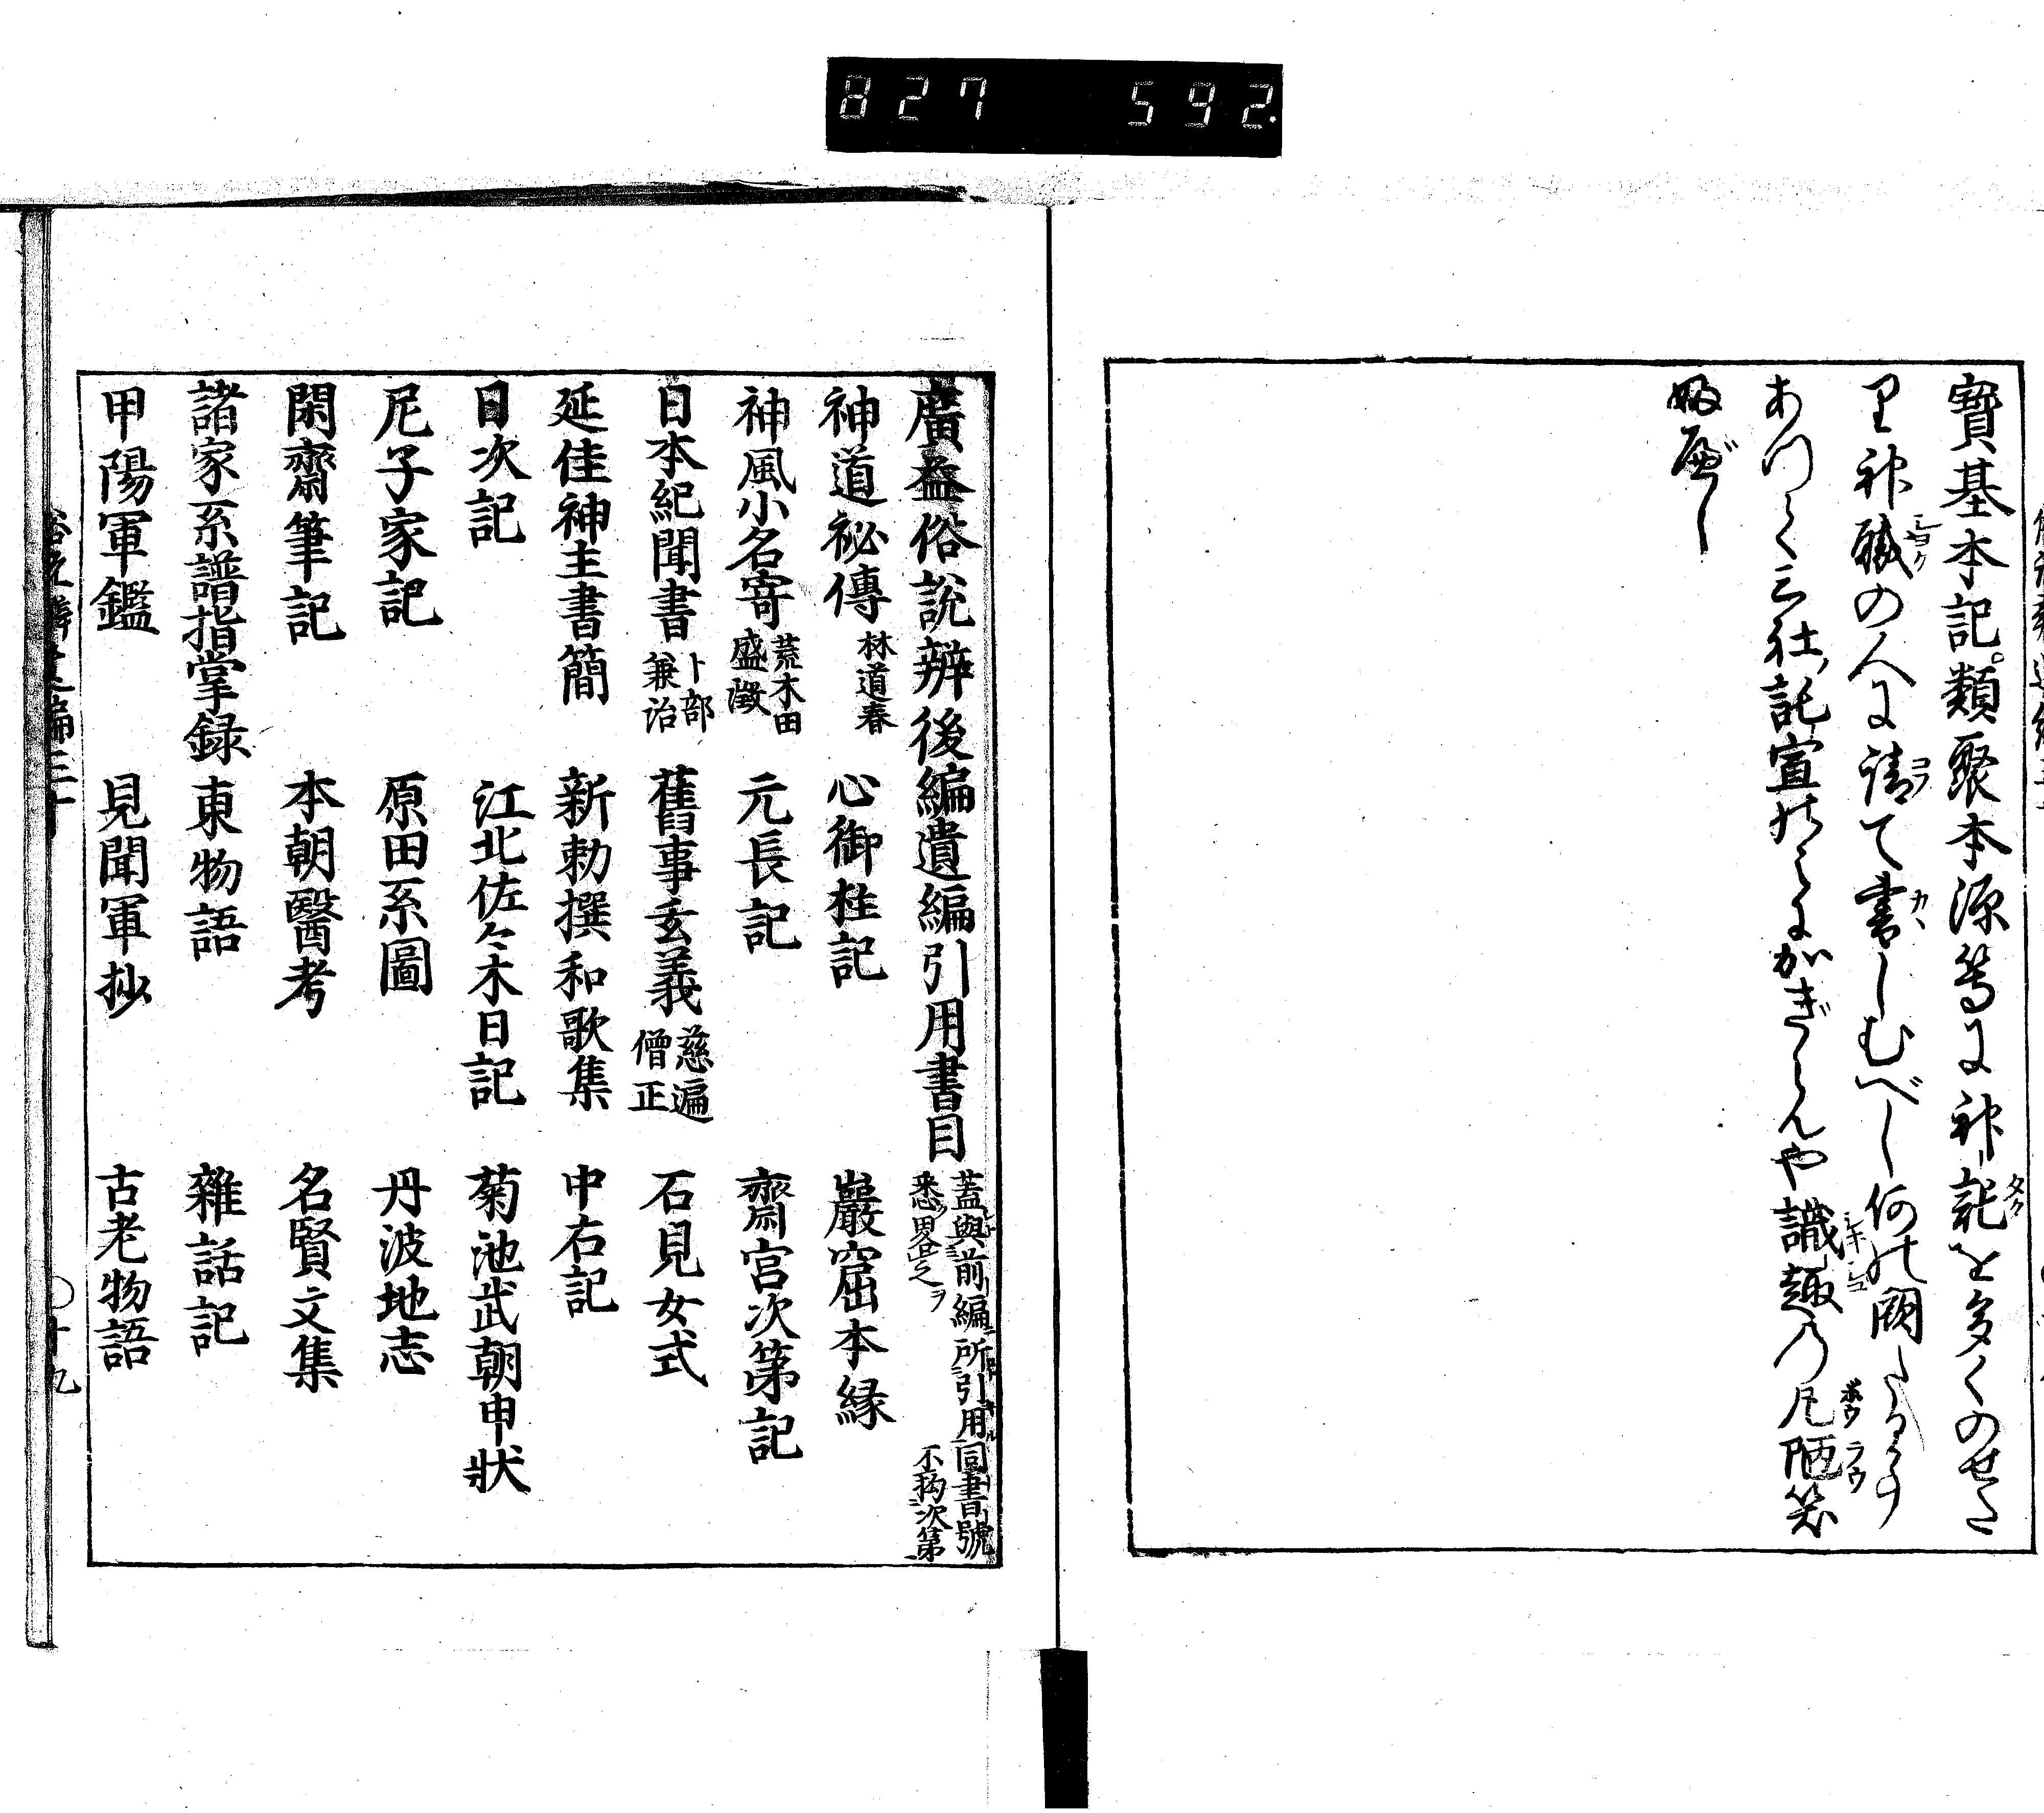 827 592.
寳基本記。類聚本源等に神託を多くのせた
り神職の人に請て書しむべし何の闕たる事
あつて三社託宣のみにかぎらんや識趣の凡陋笑
ぬべし
廣益俗説辨後編遺編引用書目 蓋與前編所引用同書號悉畧之ヲ不拘次第
神道祕傳 林道春 心御柱記 巖窟本縁
神風小名寄 荒木田盛澂 元長記 齋宮次第記
日本紀聞書 卜部兼治 舊事玄義 慈遍僧正 石見女式
延佳神主書簡 新勅撰和歌集 中右記
日次記 江北佐々木日記 菊池武朝申狀
尼子家記 原田系圖 丹波地志
閑齋筆記 本朝醫考 名賢文集
諸家系譜指掌録 東物語 雜話記
甲陽軍鑑 見聞軍抄 古老物語
〇十九